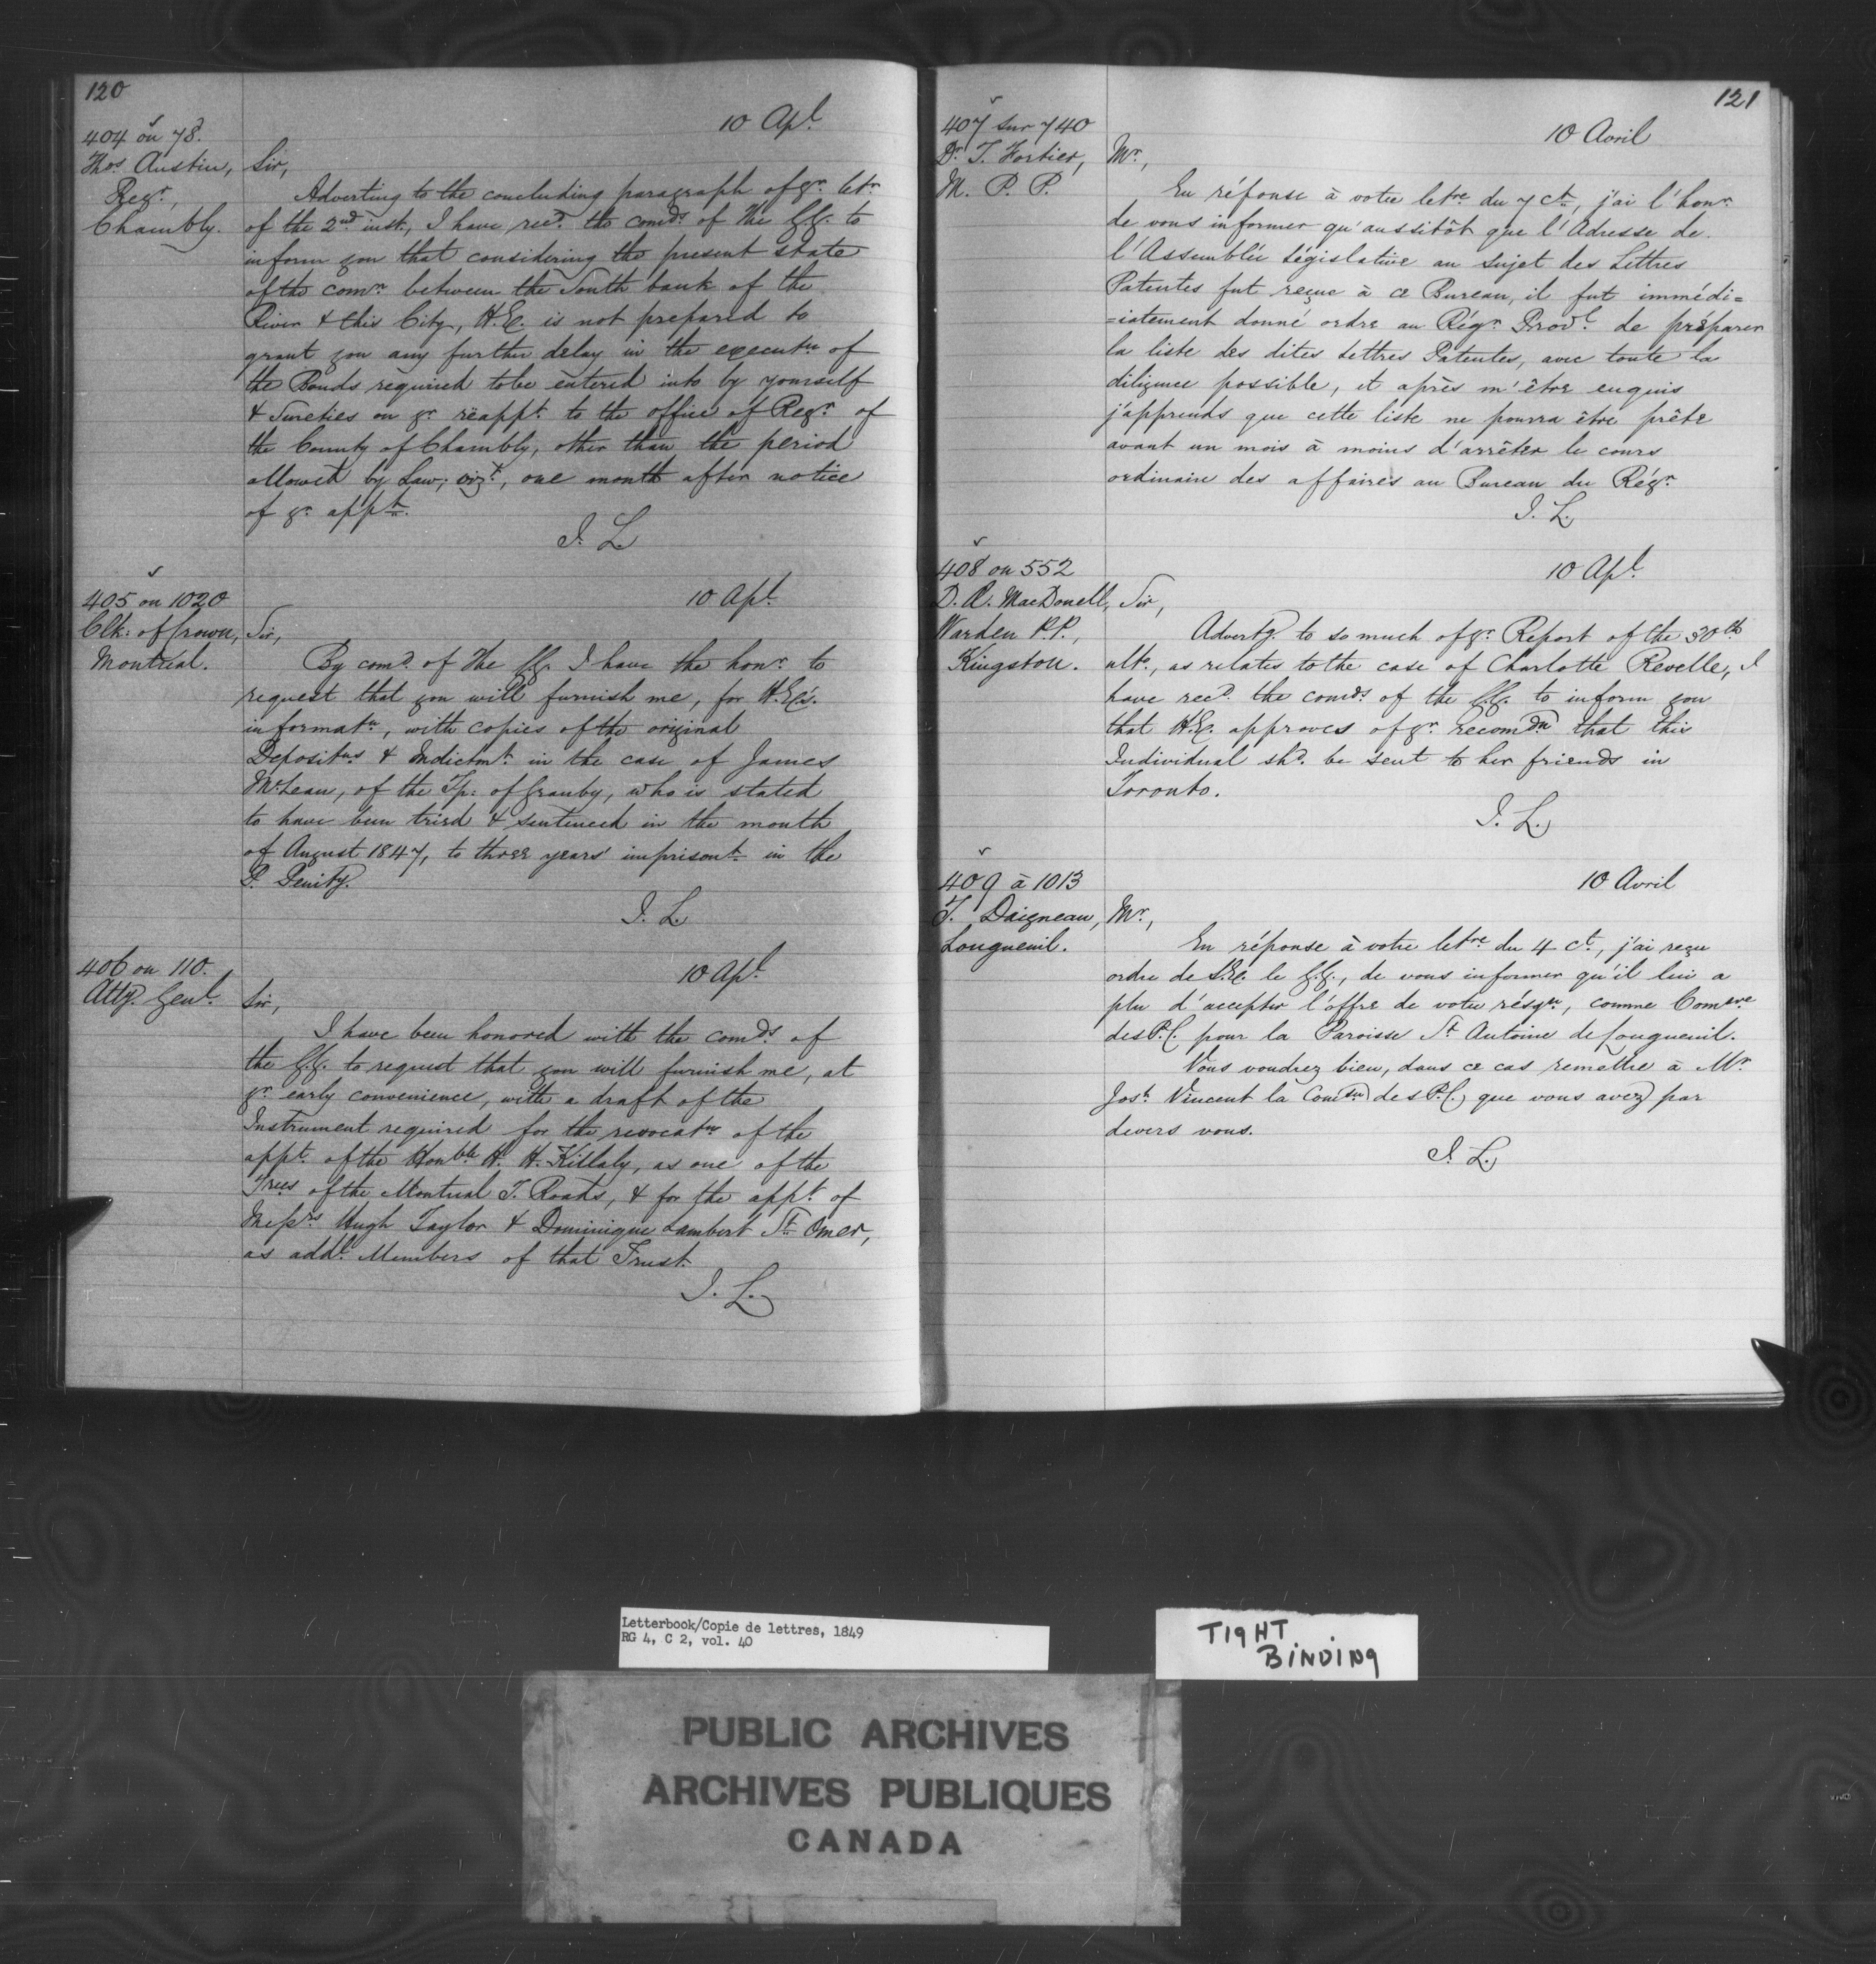 120
404 on 78.
Thos. Austin,
Regr.,
Chambly.
10 Apl.
Sir,
Adverting to the concluding paragraph of yr. letr.
of the 2nd inst., I have recd. the comds. of the G.G. to
inform you that considering the present state
of the comn. between the South bank of the
River & this City, H.E. is not prepared to
grant you any further delay in the executn of
the Bonds required to be entered into by yourself
& Sureties on yr. reappt. to the office of Regr. of
the County of Chambly, other than the period
allowed by Law; vizt., one month after notice
of yr. appt.
J. L.
405 on 1020
Clk: of Crown,
Montreal.
10 Apl.
Sir,
By comd. of the G.G. I have the honr. to
request that you will furnish me, for H.E's.
informatn, with copies of the original
Depositns & Indictmt. in the case of James
McLean, of the Tp: of Granby, who is stated
to have been tried & sentenced in the month
of August 1847, to three years' imprisont. in the
P. Penity.
J. L.
406 on 110.
Atty. Genl.
10 Apl.
Sir,
I have been honored with the comds. of
the G.G. to request that you will furnish me, at
yr. early convenience, with a draft of the
Instrument required for the revocatn of the
appt. of the Honble H. H. Killaly, as one of the
Trees of the Montreal T. Roads, & for the appt. of
Messrs Hugh Taylor & Dominique Lambert St. Omer,
as addl. Members of that Trust.
J. L.
121
407 sur 740
Dr. T. Fortier,
M. P. P.
10 Avril
Mr.,
En réponse à votre letre du 7 ct., j'ai l'honr.
de vous informer qu'aussitôt que l'Adresse de
l'Assemblée Législative au sujet des Lettres
Patentes fut reçue à ce Bureau, il fut immédi=
=iatement donné ordre au Régr. Provl. de préparer
la liste des dites Lettres Patentes, avec toute la
diligence possible, et après m'être enquis
j'apprends que cette liste ne pourra être prête
avant un mois à moins d'arrêter le cours
ordinaire des affaires au Bureau du Régr.
J. L.
408 on 552
D. Æ. MacDonell,
Warden P.P.,
Kingston.
10 Apl.
Sir,
Advertg. to so much of yr. Report of the 30th
ulto., as relates to the case of Charlotte Revelle, I
have recd. the comds. of the G.G. to inform you
that H.E. approves of yr. recomdn that this
Individual shd. be sent to her friends in
Toronto.
J. L.
409 à 1013
T. Daigneau,
Longueuil.
10 Avril
Mr.,
En réponse à votre letre du 4 ct., j'ai reçu
ordre de S.E. le G.G., de vous informer qu'il lui a
plu d'accepter l'offre de votre résign, comme Comre
des P.C. pour la Paroisse St Antoine de Longueuil.
Vous voudrez bien, dans ce cas remettre à Mr.
Josh. Vincent la Comsn des P.C. que vous avez par
devers vous.
J. L.
Letterbook/Copie de lettres, 1849
RG 4, C 2, vol. 40
TIGHT
BINDING
PUBLIC ARCHIVES
ARCHIVES PUBLIQUES
CANADA